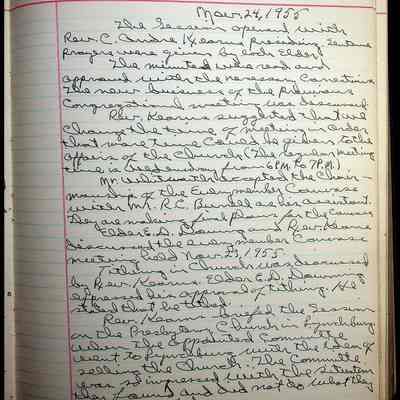 Nov. 24, 1955
The Session opened with
Rev. C. Andre Kearns presiding. Sentence
prayers were given by each Elder.
The minutes were read and
approved with the necessary corrections.
The new business of the previous
Congregational meeting was discussed.
Rev. Kearns suggested that we
change the time of meeting in order
that more time could be given to the
affairs of the Church (The regular meeting
time is Wednesday from 6 P.M. to 7 P.M.)
Mr. accepted the Chair-
manship of the Everymember Canvass
with Mr. R.C. as his assistant.
They are making final plans for the Canvass
Elder E.D. Downing and Rev. Kearns
discussed the everymember Canvass
meeting held Nov. 23, 1955.
Tithing in Church was discussed
by Rev. Kearns. Elder E.D. Downing
expressed his approval of tithing. He
stated that he tithed.
Rev. Kearns briefed the Session
on the Presbyterian Church in Lynchburg
when the appointed Committee
went to Lynchburg with the idea of
selling the Church. The Committee
was so impressed with the situation
they found and did not do what they